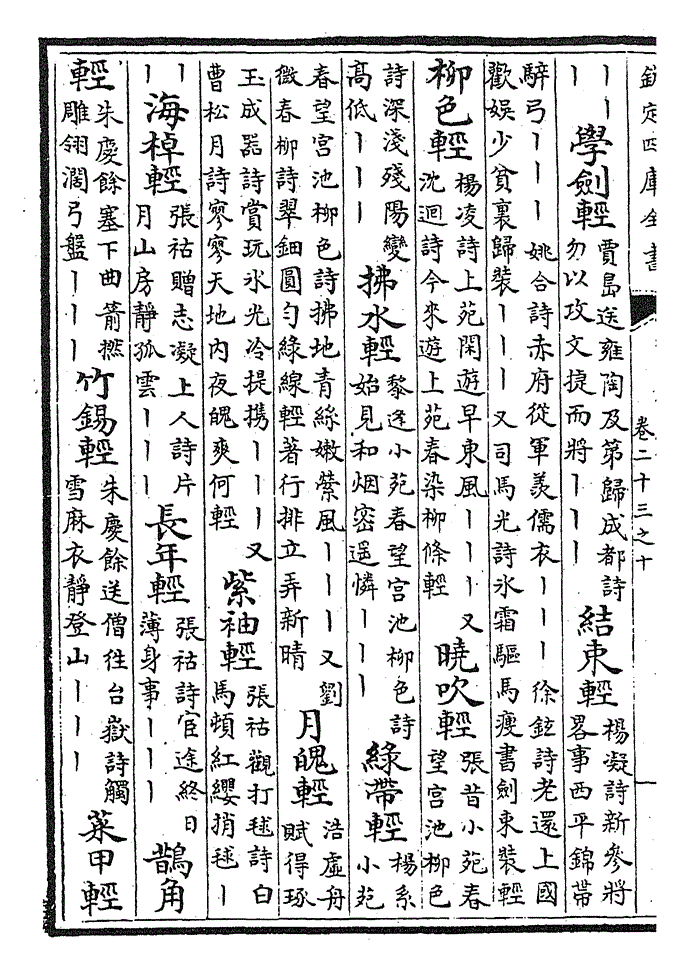 欽定四庫全書　卷二十三之十
丨丨丨丨　學劍輕　賈島送雍陶及第歸成都詩勿以攻文捷而將丨丨丨　結束輕　楊凝詩新參將畧事西平錦帶
騂弓丨丨丨　姚合詩赤府從軍羨儒衣丨丨丨　徐鉉詩老還上國歡娛少貧裏歸裝丨丨丨　又司馬光詩氷霜驅馬瘦書劍束裝輕
柳色輕　楊凌詩上苑閑遊早東風丨丨丨　又沈迴詩今來遊上苑春染柳條輕　曉吹輕　張昔小苑春望宮池柳色
詩深淺殘陽變高低丨丨丨　拂水輕　黎逢小苑春望宮池柳色詩始見和烟密遥憐丨丨丨　綠帶輕　楊系小苑
春望宮池柳色詩拂地青絲嫩縈風丨丨丨　又劉微春柳詩翠鈿圓勻綠線輕著行排立弄新晴　月魄輕　浩虛舟賦得琢
玉成器詩賞玩氷光冷提攜丨丨丨　又曹松月詩寥寥天地內夜魄爽何輕　紫袖輕　張祜觀打毬詩白馬頓紅纓捎毬丨
丨丨　海棹輕　張祜贈志凝上人詩片月山房靜孤雲丨丨丨　長年輕　張祜詩宦途終日薄身事丨丨丨　鵲角
輕　朱慶餘塞下曲箭撚雕翎闊弓盤丨丨丨　竹錫輕　朱慶餘送僧往台嶽詩觸雪麻衣靜登山丨丨丨　菜甲輕